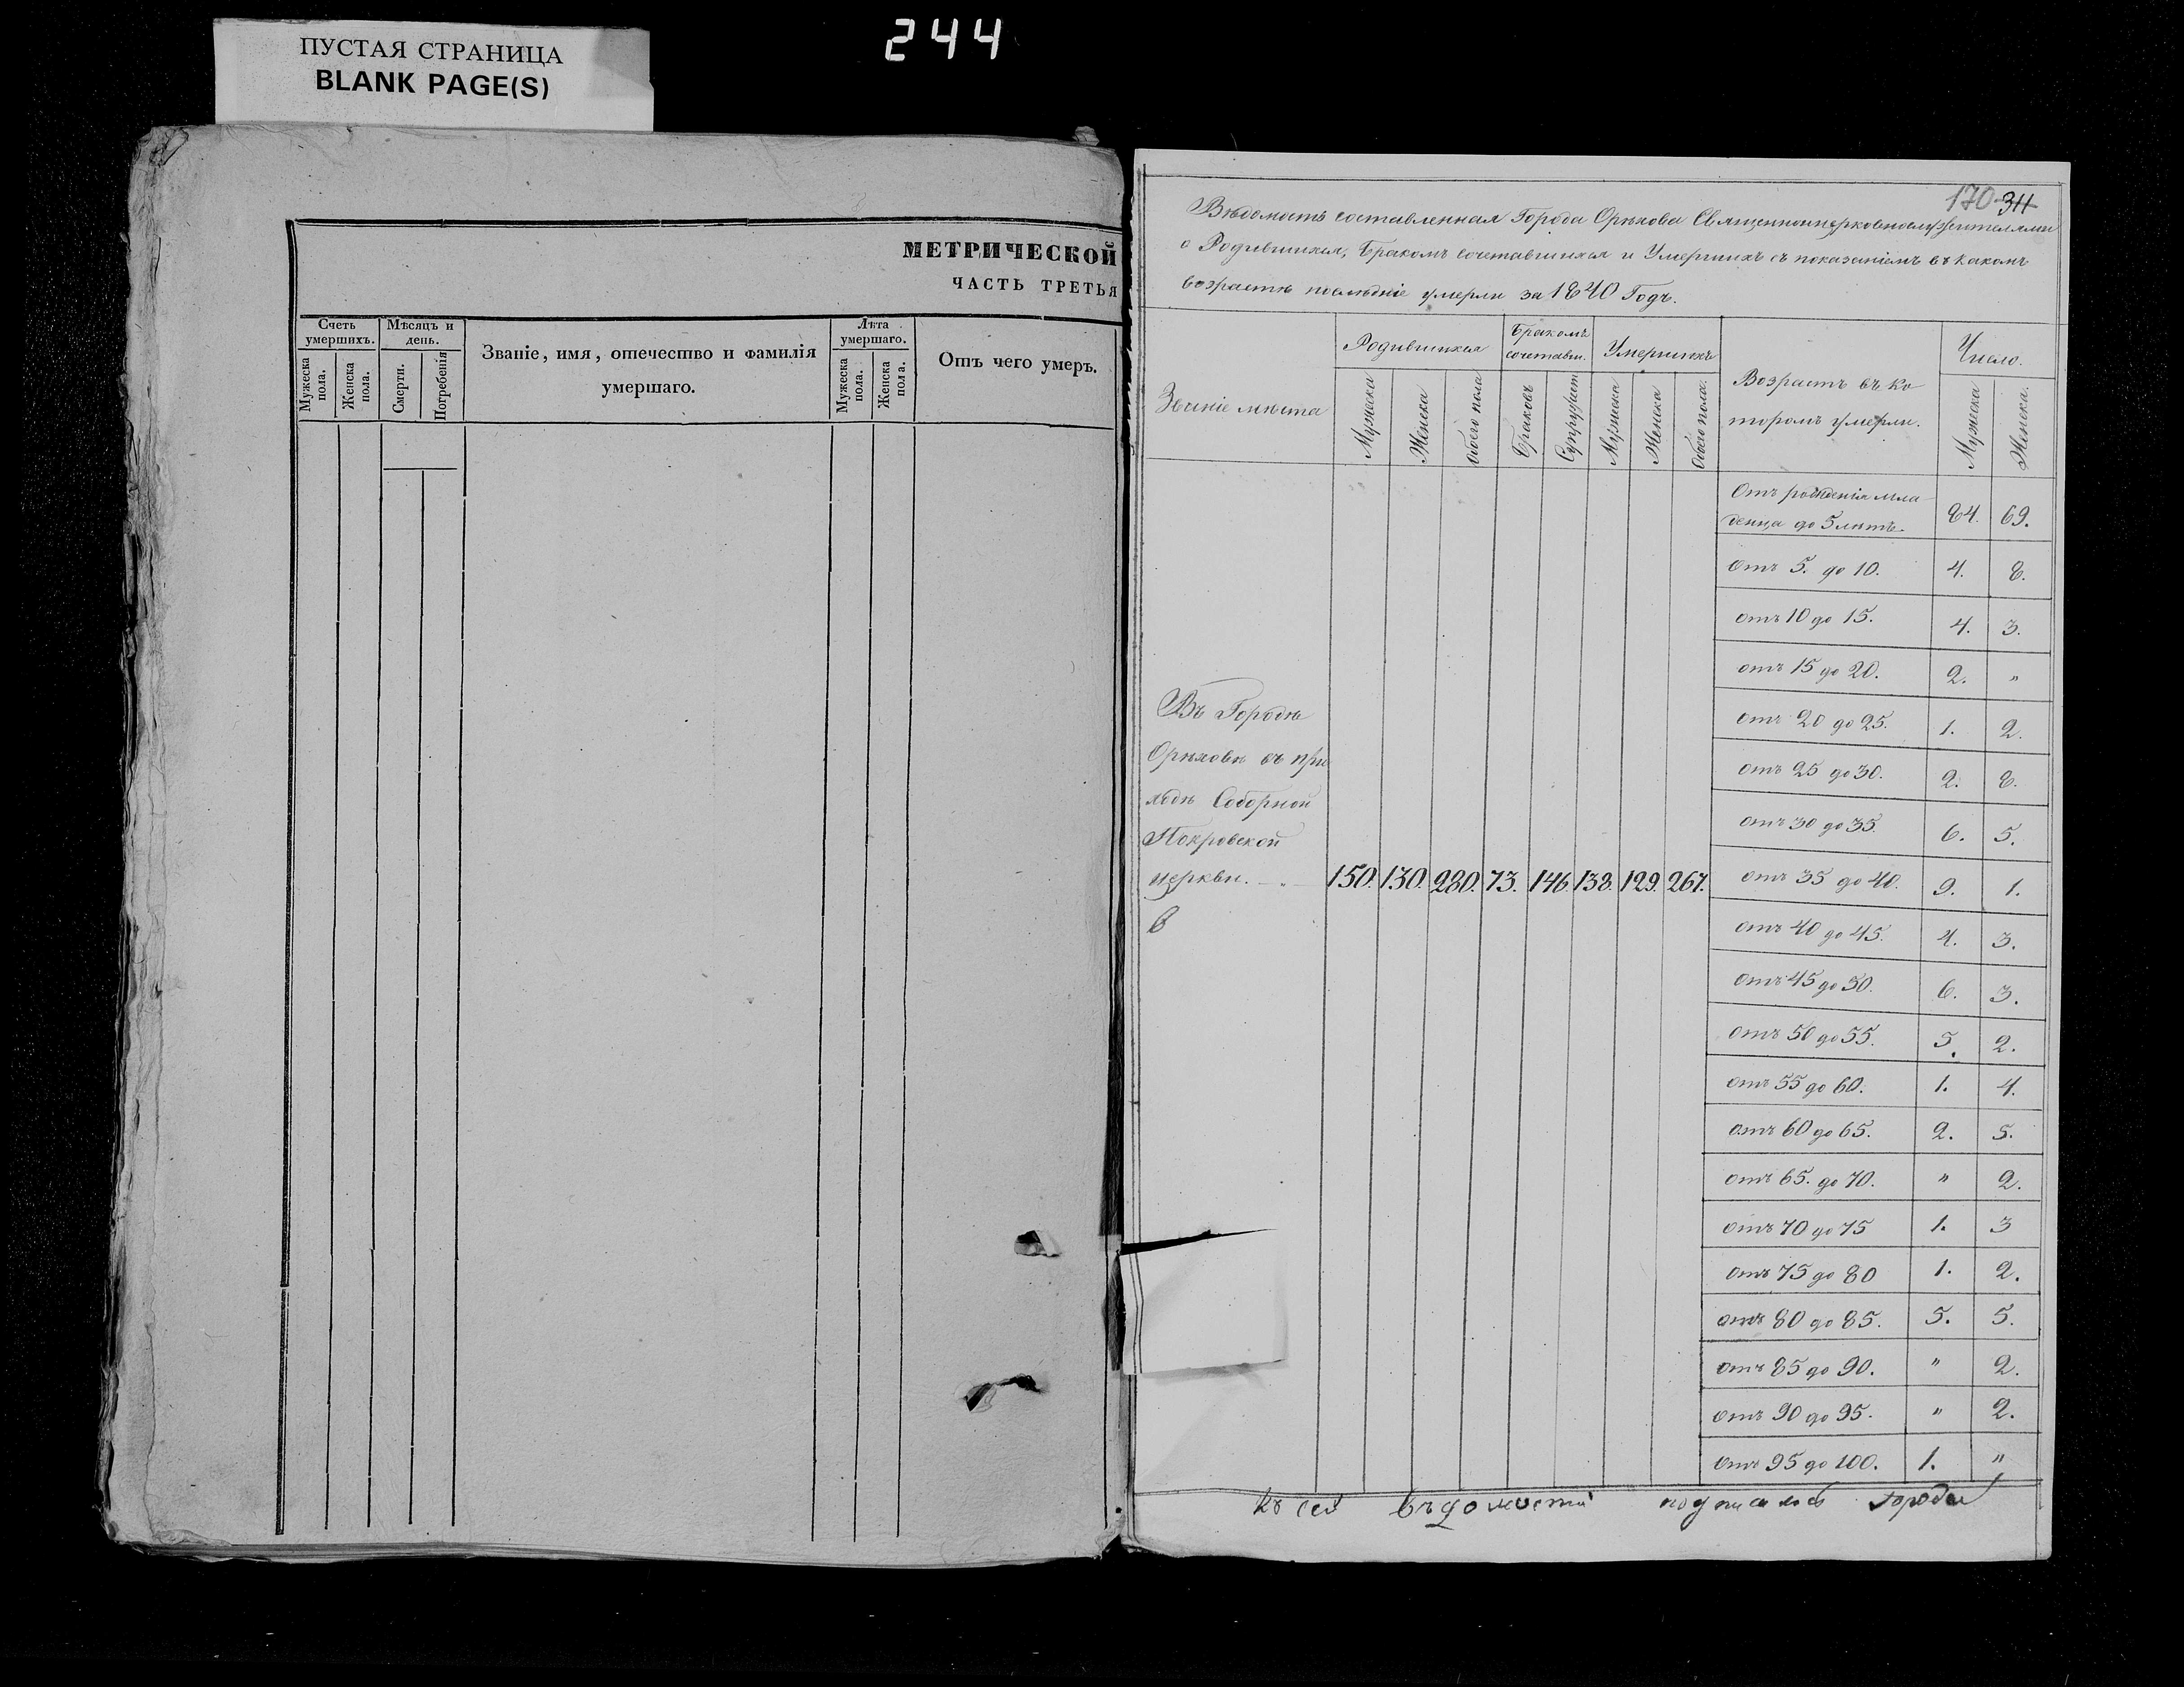 ПУСТАЯ СТРАНИЦА
BLANK PAGE(S)
244
МЕТРИЧЕСКОЙ
ЧАСТЬ ТРЕТЬЯ
Счетъ умершихъ.
Мужеска пола.
Женска пола.
Мѣсяцъ и день.
Смерти.
Погребенія
Званіе, имя, отечество и фамилія
умершаго.
Лѣта умершаго.
Мужеска пола.
Женска пола.
Отъ чего умеръ.
170
Вѣдомость составленная Города Орѣхова Священноцерковнослужителями
о Родившихся, Бракомъ сочетавшихся и Умершихъ съ показаніемъ въ какомъ
возрастѣ послѣдніе умерли за 1840 Годъ.
Званіе мѣста
Родившихся
Мужеска
Женска
Обоего пола
Бракомъ
сочетавш.
Браковъ
Супружест
Умершихъ
Мужеска
Женска
Обоего пола.
Возрастъ въ ко
торомъ умерли.
Число.
Мужеска
Женска.
Въ Городѣ
Орѣховѣ въ при
ходѣ Соборной
Покровской
церкви. 150. 130. 280. 73. 146. 138. 129. 267.
в
Отъ рожденія мла
денца до 5 лѣтъ. 84. 69.
отъ 5. до 10. 4. 8.
отъ 10 до 15. 4. 3.
отъ 15 до 20. 2. "
отъ 20 до 25. 1. 2.
отъ 25 до 30. 2. 8.
отъ 30 до 35. 6. 5.
отъ 35 до 40. 9. 1.
отъ 40 до 45. 4. 3.
отъ 45 до 50. 6. 3.
отъ 50 до 55. 5. 2.
отъ 55 до 60. 1. 4.
отъ 60 до 65. 2. 5.
отъ 65. до 70. " 2.
отъ 70 до 75 1. 3
отъ 75 до 80 1. 2.
отъ 80 до 85. 5. 5.
отъ 85 до 90. " 2.
отъ 90 до 95. " 2.
отъ 95 до 100. 1. "
Къ сей вѣдомости подписалъ города